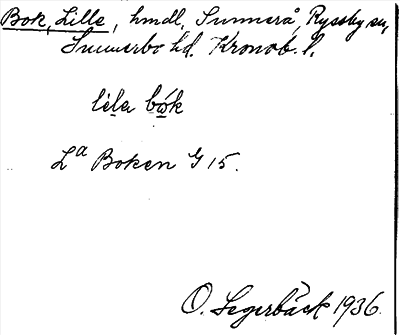 Bok, Lille, hmdl, Sunnerå, Ryssby sn,
Sunnerbo hd. Kronob. l.
lela bok
La Boken G 15.
O. Segerbäck 1936.